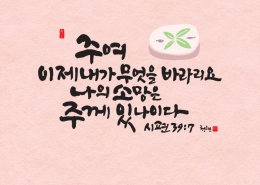 주여
이제 내가 무엇을 바라리요
나의 소망은
주께 있나이다
시편 39:7